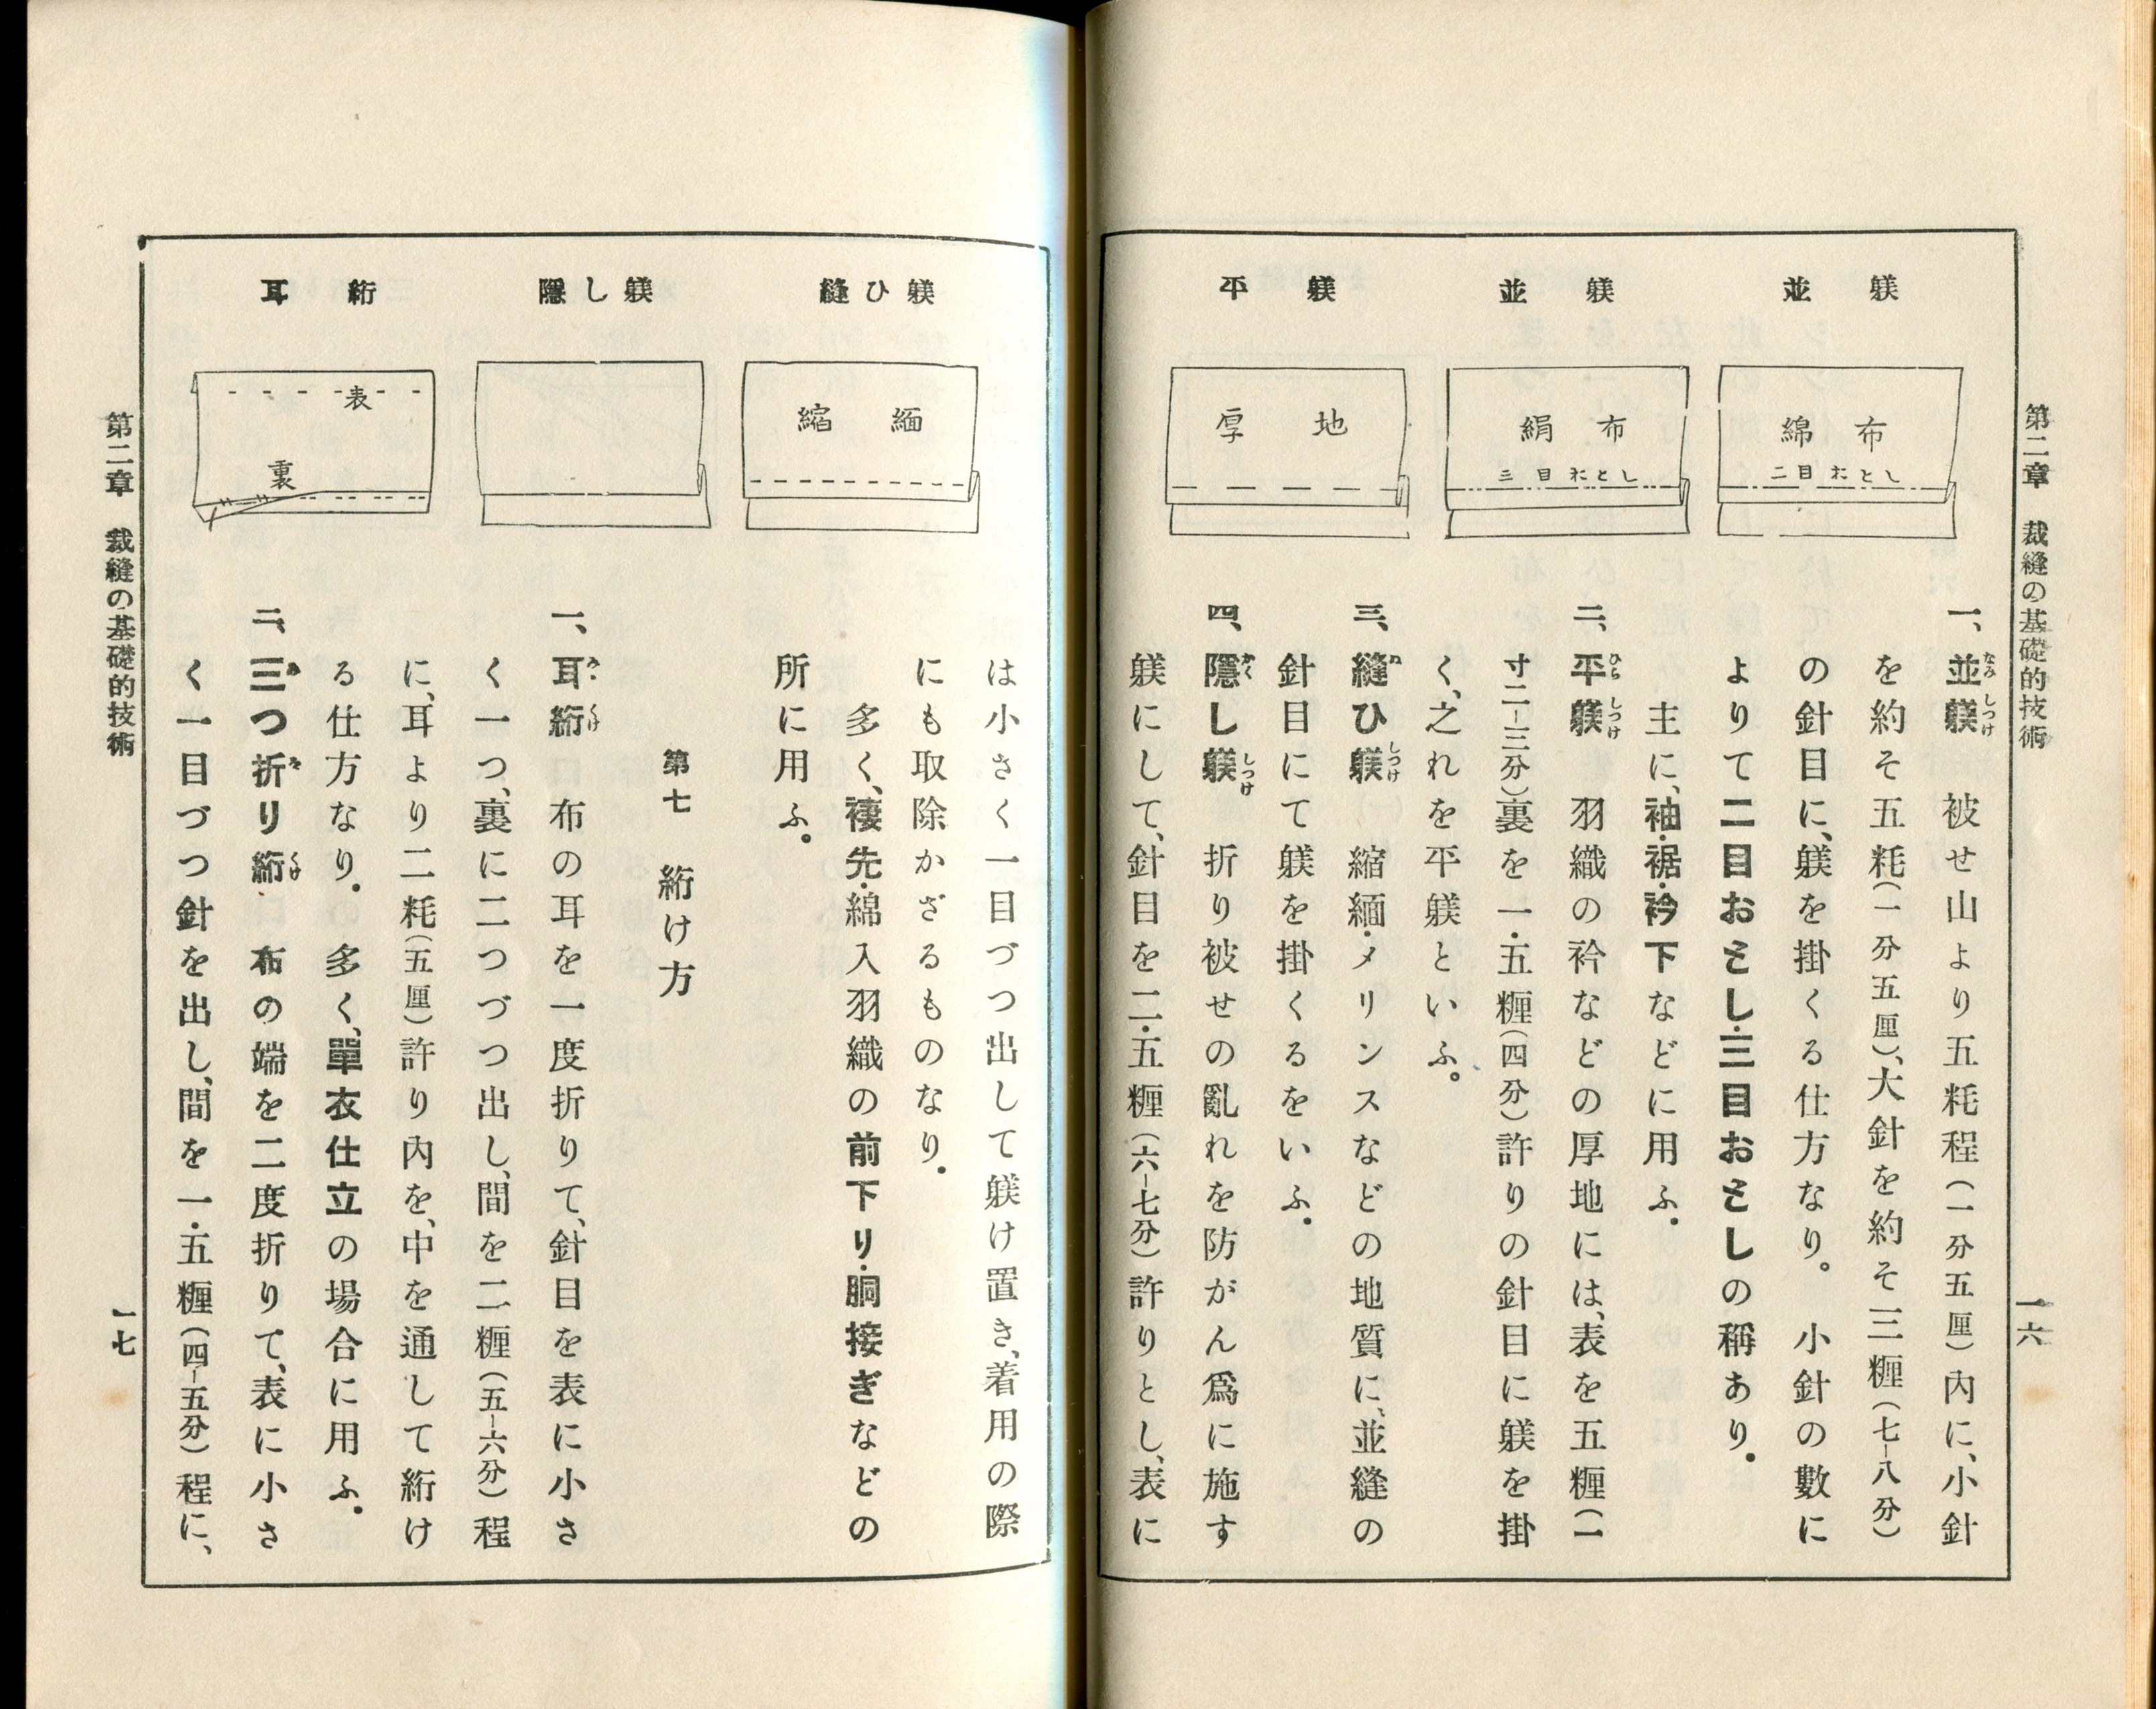 第二章　裁縫の基礎的技術
一六
並　躾
綿　布
二目おとし
並　躾
絹　布
三目おとし
平　躾
厚　地
一、並躾　被せ山より五粍程（一分五厘）內に、小針
を約そ五粍（一分五厘）、大針を約そ三糎（七–八分）
の針目に、躾を掛くる仕方なり。　小針の數に
よりて二目おとし・三目おとしの稱あり。
主に、袖・裾・衿下などに用ふ。
二、平躾　羽織の衿などの厚地には、表を五糎（一
寸二–三分）裏を一・五糎（四分）許りの針目に躾を掛
く、之れを平躾といふ。
三、縫ひ躾　縮緬・メリンスなどの地質に、並縫の
針目にて躾を掛くるをいふ。
四、隱し躾　折り被せの亂れを防がん爲に施す
躾にして、針目を二・五糎（六–七分）許りとし、表に
縫ひ躾
縮　緬
隱し躾
耳　絎
表
裏
は小さく一目づつ出して躾け置き、着用の際
にも取除かざるものなり。
多く、褄先・綿入羽織の前下り・胴接ぎなどの
所に用ふ。
第七　絎け方
一、耳絎　布の耳を一度折りて、針目を表に小さ
く一つ、裏に二つづつ出し、間を二糎（五–六分）程
に、耳より二粍（五厘）許り內を、中を通して絎け
る仕方なり。　多く、單衣仕立の場合に用ふ。
二、三つ折り絎　布の端を二度折りて、表に小さ
く一目づつ針を出し、間を一・五糎（四–五分）程に、
第二章　裁縫の基礎的技術
一七